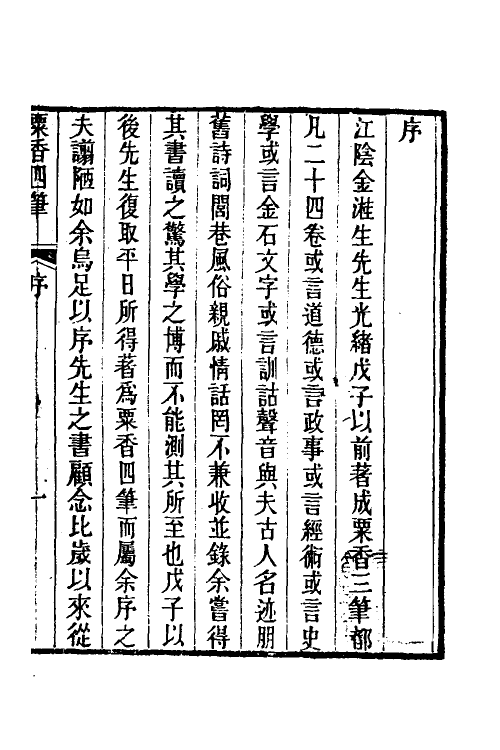 序
江陰金溎生先生光緒戊子以前著成粟香三筆都
凡二十四卷或言道德或言政事或言經術或言史
學或言金石文字或言訓詁聲音與夫古人名迹朋
舊詩詞閭巷風俗親戚情話罔不兼收並錄余嘗得
其書讀之驚其學之博而不能測其所至也戊子以
後先生復取平日所得著為粟香四筆而屬余序之
夫謭陋如余烏足以序先生之書顧念比歲以來從
粟香四筆 序 一